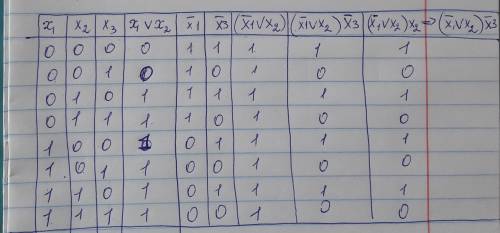 x₁ x₂ x₃ x₁ ∨ x₂ x̄1 x̄3 (x̄1∨x₂) (x̄1∨x₂) x̄3 (x̄₁∨x₂)x₂ ⇒ (x̄₁∨x₂)x̄3
0 0 0 0 1 1 1 1 1
0 0 1 0 1 0 1 0 0
0 1 0 1 1 1 1 1 1
0 1 1 1 1 0 1 0 0
1 0 0 1 0 1 1 1 1
1 0 1 1 0 0 1 0 0
1 1 0 1 0 1 1 1 1
1 1 1 1 0 0 1 0 0